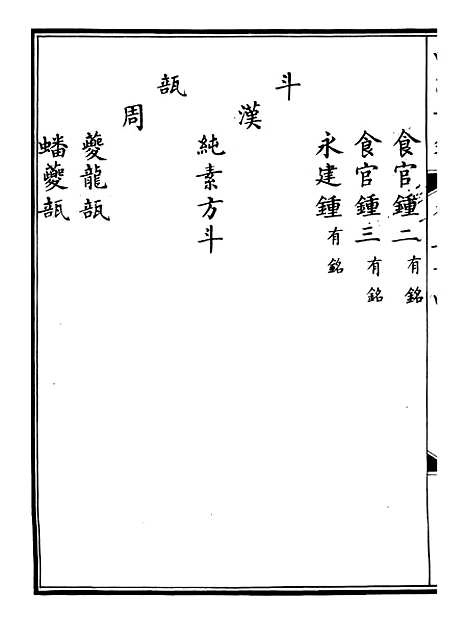 食官鍾二有銘
食官鍾三有銘
永建鍾有銘
斗
漢
純素方斗
瓿
周
夔龍瓿
蟠夔瓿